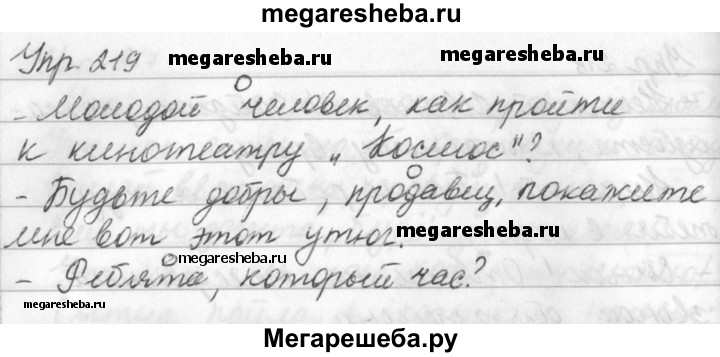 megaresheba.ru
Упр. 219 megaresheba.ru megaresheba.ru
- Молодой человек, как пройти
к кинотеатру „Космос"?
- Будьте добры, продавец, покажите
мне вот этот утюг. megaresheba.ru
- Ребята, который час?
megaresheba.ru megaresheba.ru
Мегарешеба.ру